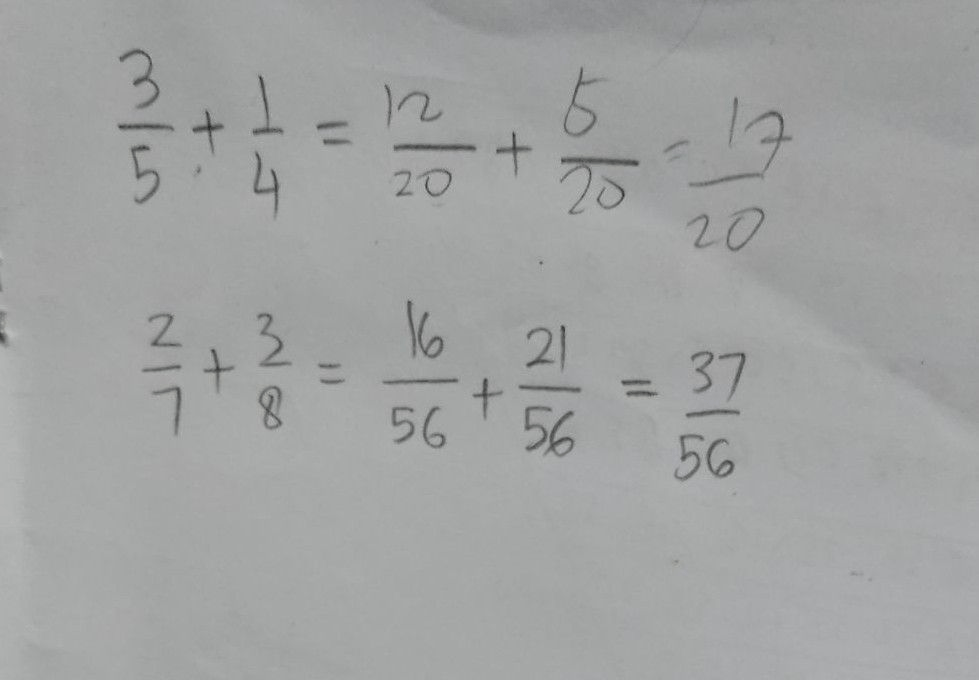 3/5 + 1/4 = 12/20 + 5/20 = 17/20
2/7 + 3/8 = 16/56 + 21/56 = 37/56